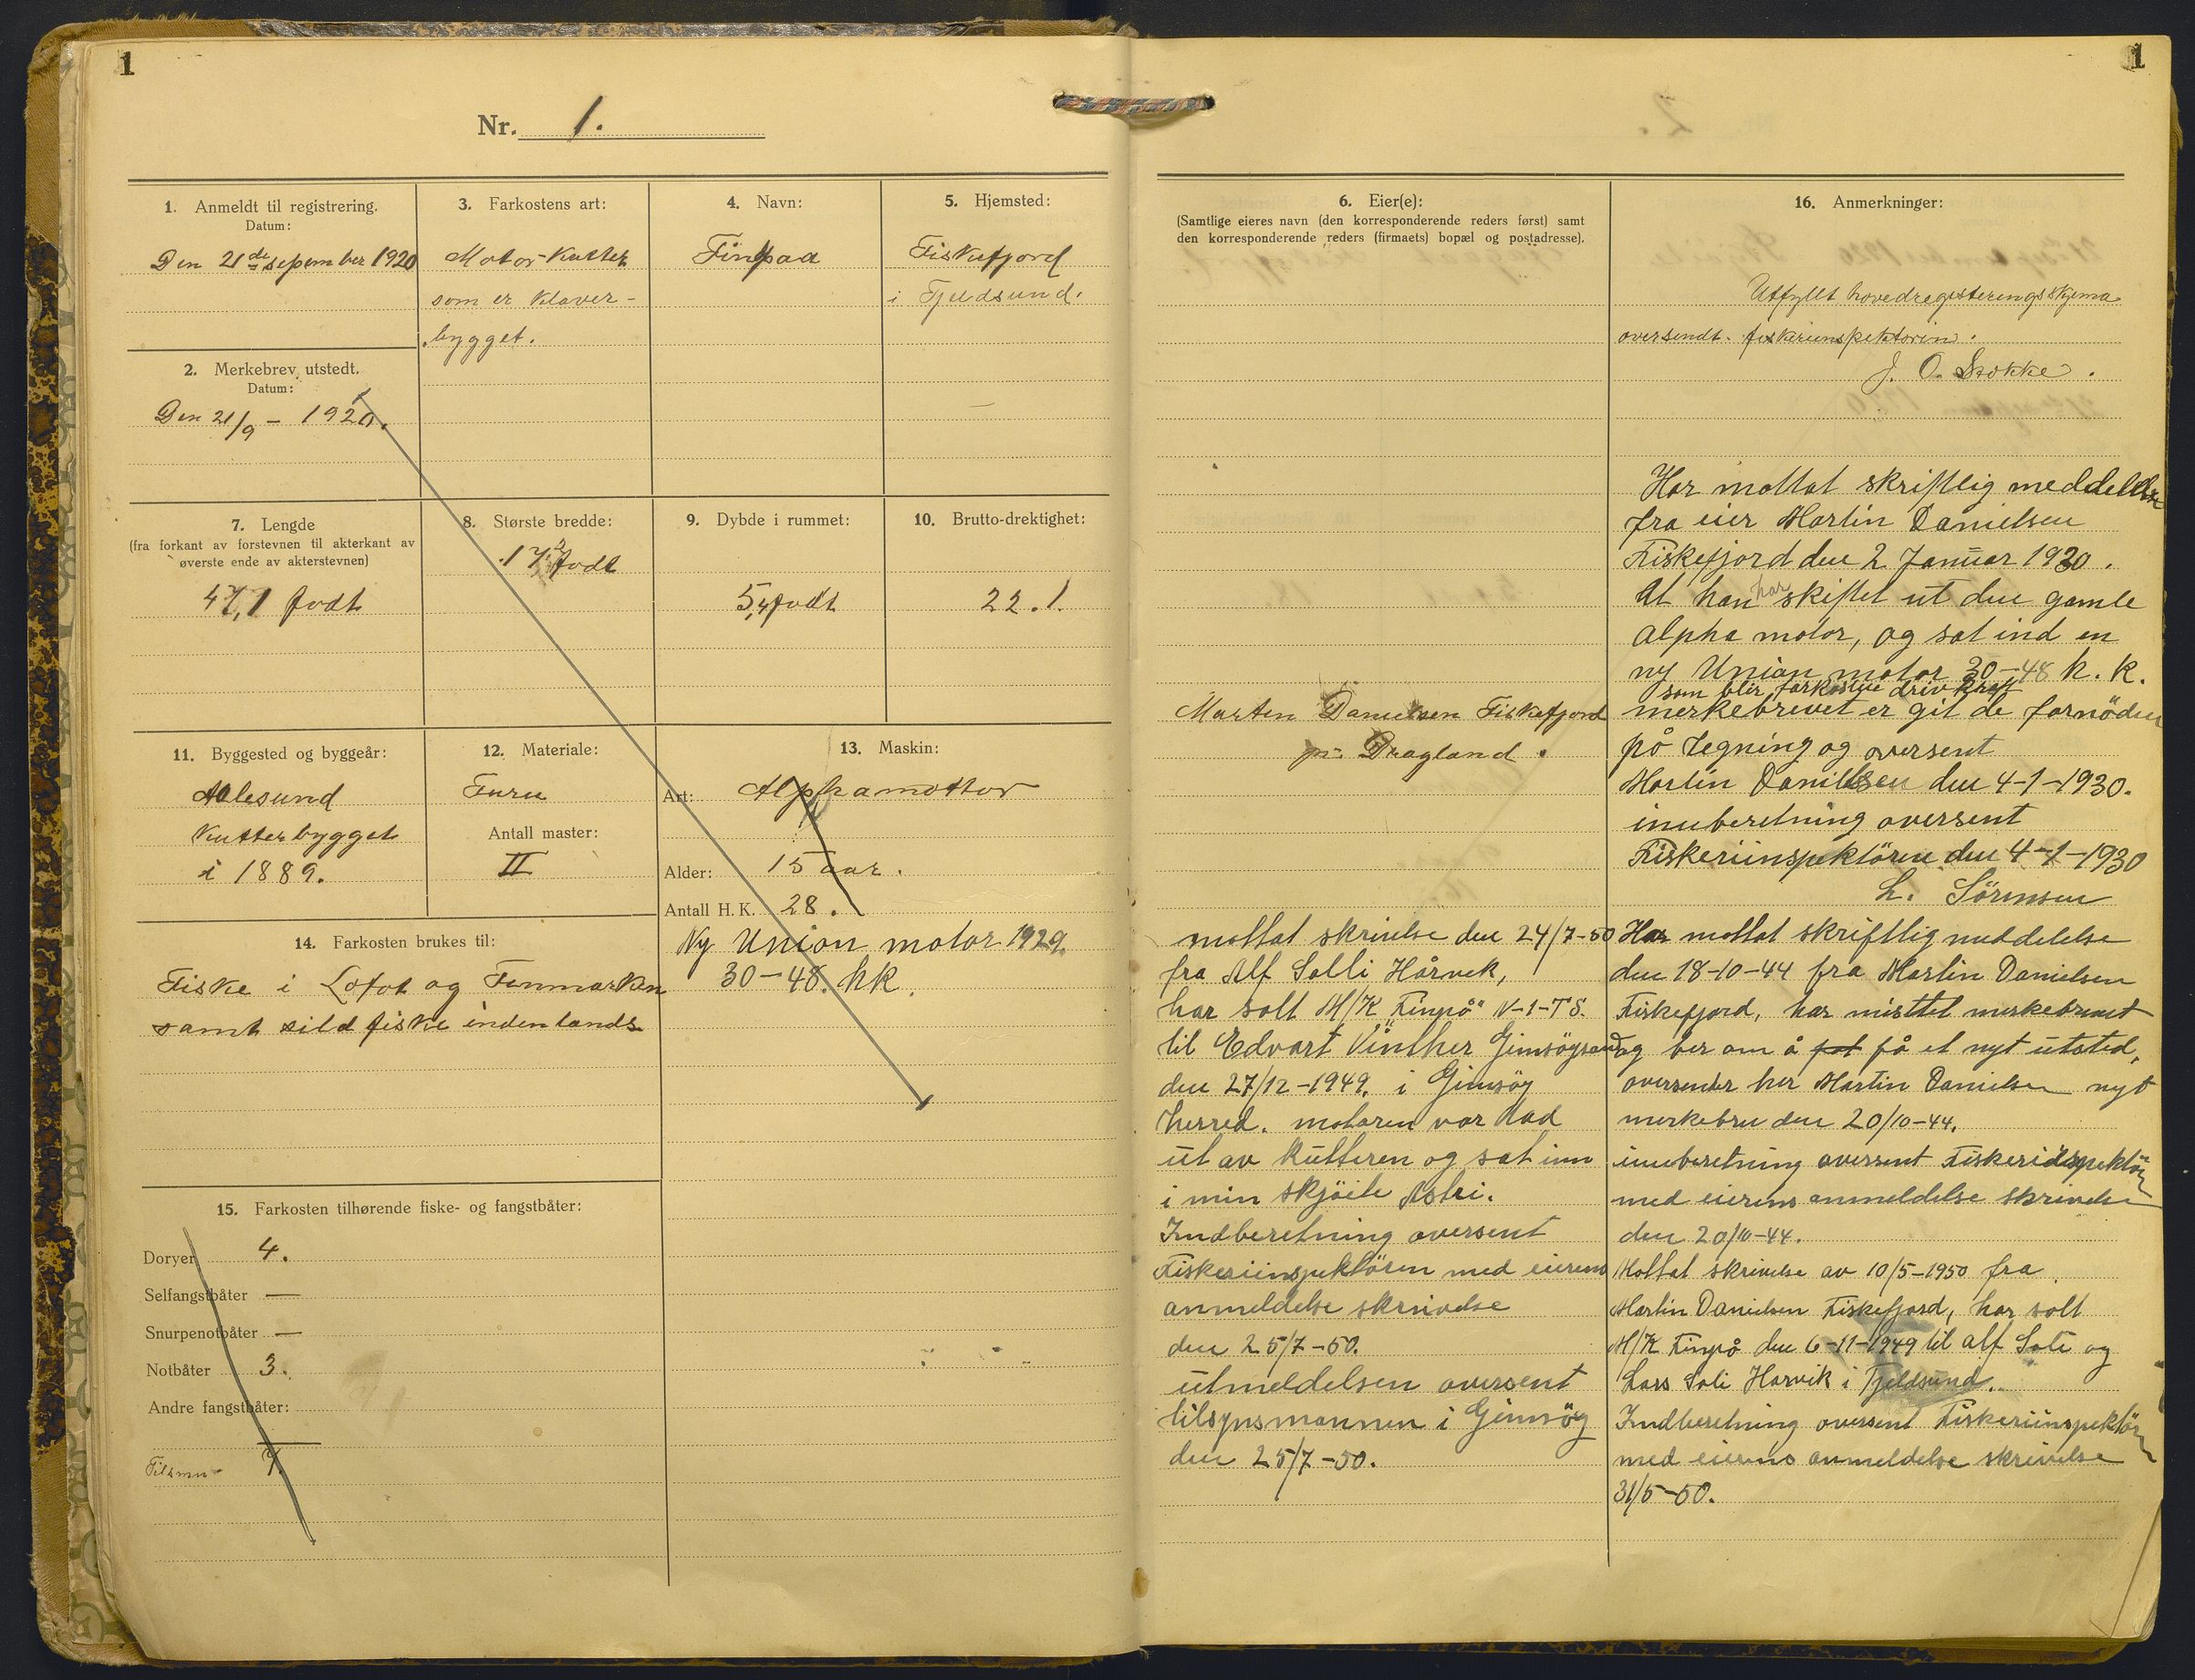 1
Nr. 1.
1. Anmeldt til registrering.
Datum:
Den 21de sepember 1920
2. Merkebrev utstedt.
Datum:
Den 21/9 – 1920.
3. Farkostens art:
Motor-Kutter
som er Klaver-
bygget.
4. Navn:
Finpaa
5. Hjemsted:
Fiskefjord
i Fjeldsund.
7. Lengde
(fra forkant av forstevnen til akterkant av
øverste ende av akterstevnen)
47,1 fodt
8. Største bredde:
17,2 fodt
9. Dybde i rummet:
5,4 fodt
10. Brutto-drektighet:
22.1.
11. Byggested og byggeår:
Aalesund
Kutterbygget
i 1889.
12. Materiale:
Furu
Antall master:
II
13. Maskin:
Art: Alphamottor
Alder: 15 aar.
Antall H. K. 28.
Ny Union motor 1929.
30–48. hk.
14. Farkosten brukes til:
Fiske i Lofot og Finmarken
samt sild fiske indenlands
15. Farkosten tilhørende fiske- og fangstbåter:
Doryer 4.
Selfangstbåter —
Snurpenotbåter —
Notbåter 3.
Andre fangstbåter:
7.
1
6. Eier(e):
(Samtlige eieres navn (den korresponderende reders først) samt
den korresponderende reders (firmaets) bopæl og postadresse).
Marten Danielsen Fiskefjord
pr. Dragland.
mottat skrivelse den 24/7-50
fra Alf Solli Hårvek,
har solt M/K "Finpå" N-1-TS.
til Edvart Vinther Gimsöysand
den 27/12-1949. i Gimsöy
herred. motoren var tad
ut av kutteren og sat inn
i min skjöite Astri.
Indberetning oversent
Fiskeriinspektören med eierens
anmeldelse skrivelse
den 25/7-50.
utmeldelsen oversent
tilsynsmannen i Gimsöy
den 25/7-50.
16. Anmerkninger:
Utfyllt hovedregisterings skjema
oversendt fiskeriinspektören.
J. O. Stokke.
Har mottat skriftlig meddelelse
fra eier Martin Danielsen
Fiskefjord den 2 Januar 1930.
At han har skiftet ut den gamle
Alpha motor, og sat ind en
ny Union motor 30–48 k. k.
som blir farkostene drivkraft
merkebrevet er git de fornöden
på tegning og oversent
Martin Danielsen den 4-1-1930.
inuberetning oversent
Fiskeriinspektören den 4-1-1930
L. Sörensen
Har mottat skriftlig meddelelse
den 18-10-44 fra Martin Danielsen
Fiskefjord, har mistet merkebrevet
og ber om å fåt få et nyt utsted,
oversender her Martin Danielsen nyt
merkebrev den 20/10-44.
inuberetning oversent Fiskeriinspektör
med eierens anmeldelse skrivelse
den 20/10-44.
Mottat skrivelse av 10/5-1950 fra
Martin Danielsen Fiskefjord, har solt
M/K Finpå den 6-11-1949 til Alf Soli og
Lars Soli Harvik i Fjeldsund.
Indberetning oversent Fiskeriinspektör
med eierens anmeldelse skrivelse
31/5-50.